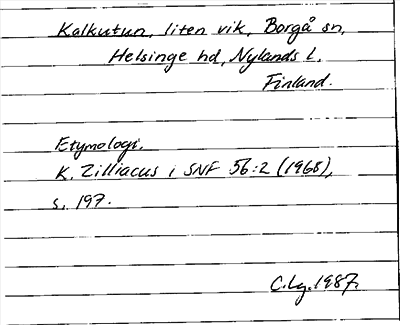 Kalkutun, liten vik, Borgå sn,
Helsinge hd, Nylands l.
Finland.
Etymologi.
K. Zilliacus i SNF 56:2 (1968),
s. 197.
C.Lg. 1987.